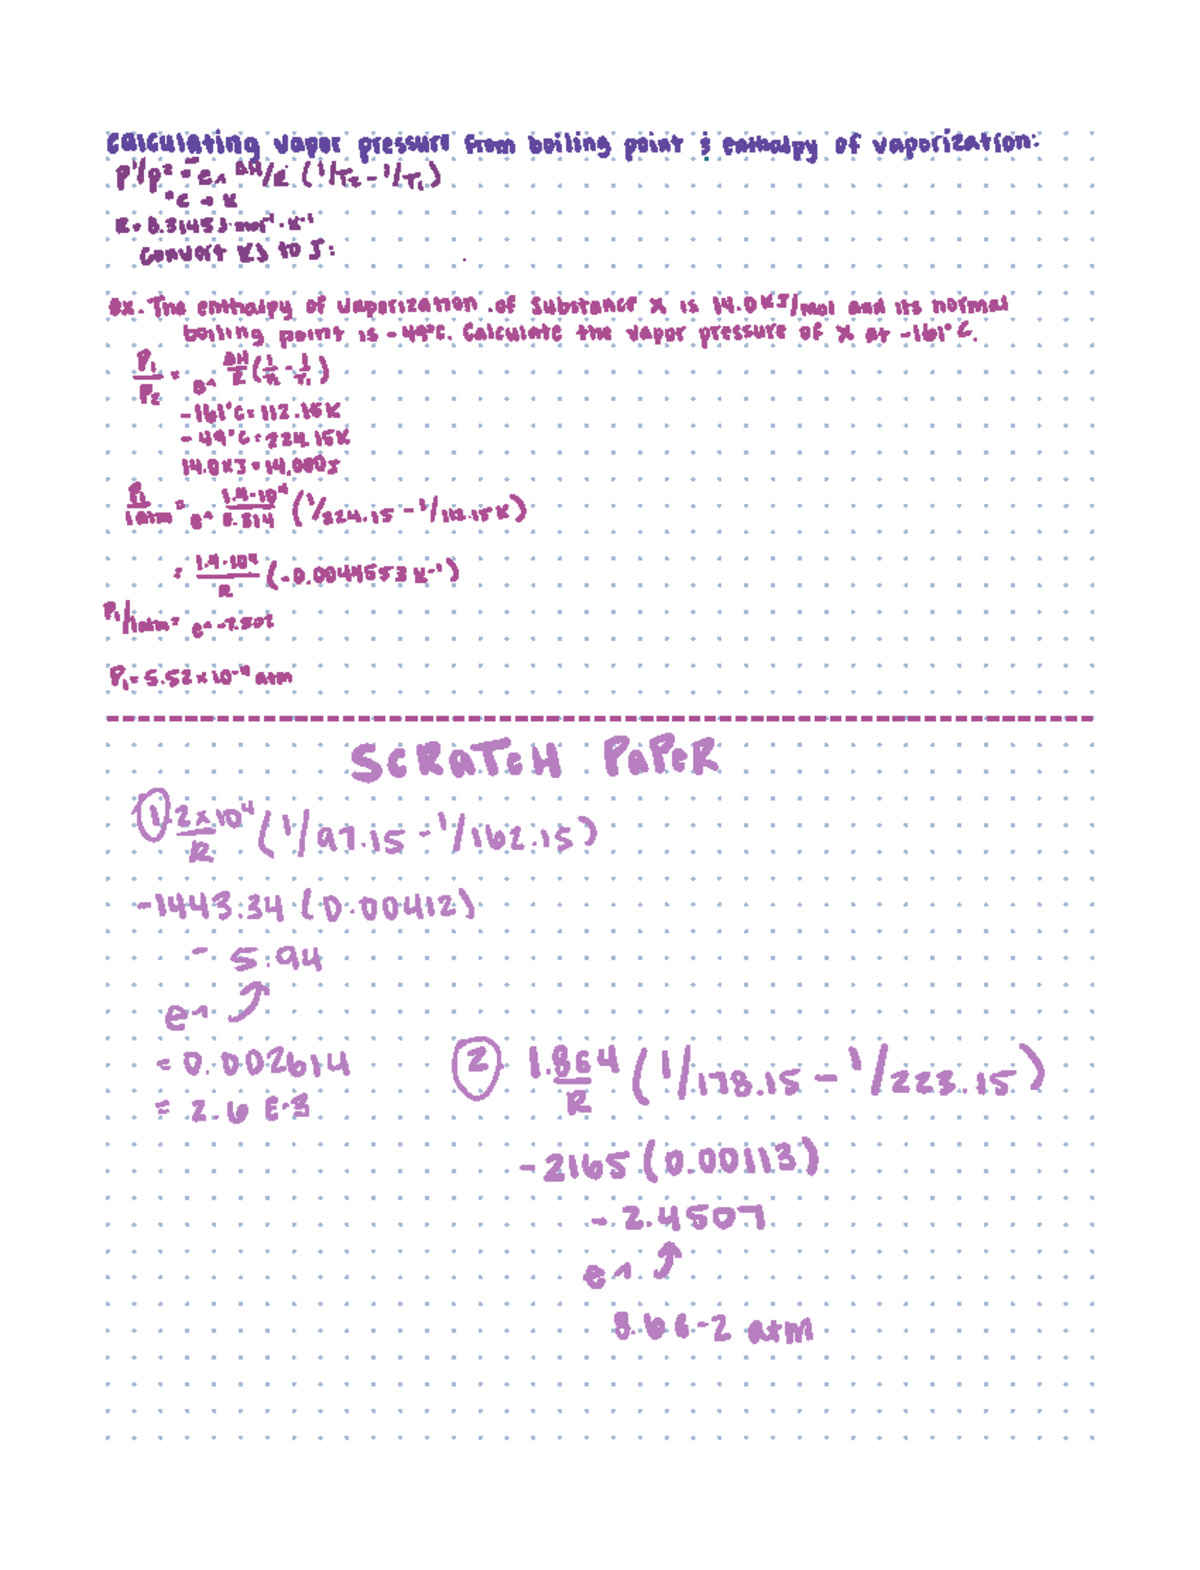 Calculating vapor pressure from boiling point & enthalpy of vaporization:
P1/P2 = e^ ΔH/R (1/T2 - 1/T1)
°C → K
R = 8.3145 J·mol⁻¹·K⁻¹
Convert KJ to J:
ex. The enthalpy of vaporization of Substance X is 14.0 KJ/mol and its normal
boiling point is -49°C. Calculate the vapor pressure of X at -161°C.
P1/P2 = e^ ΔH/R (1/T2 - 1/T1)
-161°C = 112.15K
-49°C = 224.15K
14.0KJ = 14,000J
P1/1atm = e^ 1.4·10⁴/8.314 (1/224.15 - 1/112.15K)
= 1.4·10⁴/R (-0.0044553 K⁻¹)
P1/1atm = e^-7.502
P1 = 5.52 x 10⁻⁴ atm
SCRATCH PAPER
① 1.2 x 10⁴/R (1/97.15 - 1/162.15)
-1443.34 (0.00412)
- 5.94
e^
= 0.002614
= 2.6 E-3
② 1.8E4/R (1/178.15 - 1/223.15)
-2165 (0.00113)
-2.4507
e^
8.6E-2 atm